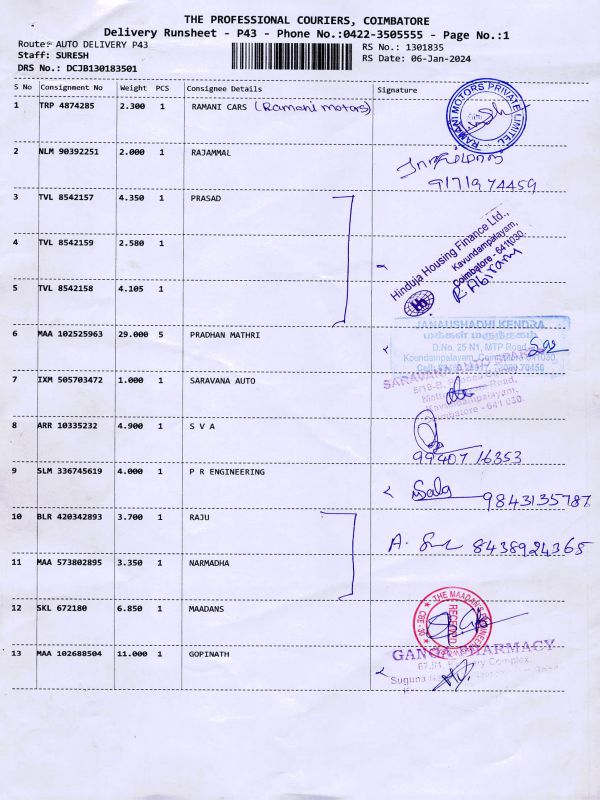 THE PROFESSIONAL COURIERS, COIMBATORE
Delivery Runsheet - P43 - Phone No.:0422-3505555 - Page No.:1
Route: AUTO DELIVERY P43
Staff: SURESH
DRS No.: DCJB130183501
RS No.: 1301835
RS Date: 06-Jan-2024
S No Consignment No Weight PCS Consignee Details Signature
1 TRP 4874285 2.300 1 RAMANI CARS (Ramani motors)
RAMANI MOTORS PRIVATE LIMITED
2 NLM 90392251 2.000 1 RAJAMMAL
9171974459
3 TVL 8542157 4.350 1 PRASAD
4 TVL 8542159 2.580 1
5 TVL 8542158 4.105 1
Hinduja Housing Finance Ltd.,
Kavundampalayam,
Coimbatore - 641 030.
R. Abirami
6 MAA 102525963 29.000 5 PRADHAN MATHRI
JANAUSHADHI KENDRA
மக்கள் மருந்தகம்
D.No. 25 N1, MTP Road
Koundampalayam, Coimbatore - 641030.
7 IXM 505703472 1.000 1 SARAVANA AUTO
SARAVANA AUTO SPARES
Kavundampalayam,
Coimbatore - 641 030.
8 ARR 10335232 4.900 1 S V A
99407 16353
9 SLM 336745619 4.000 1 P R ENGINEERING
Bala 9843135787
10 BLR 420342893 3.700 1 RAJU
A. 8438924365
11 MAA 573802895 3.350 1 NARMADHA
12 SKL 672180 6.850 1 MAADANS
13 MAA 102688504 11.000 1 GOPINATH
GANGA PHARMACY
Suguna